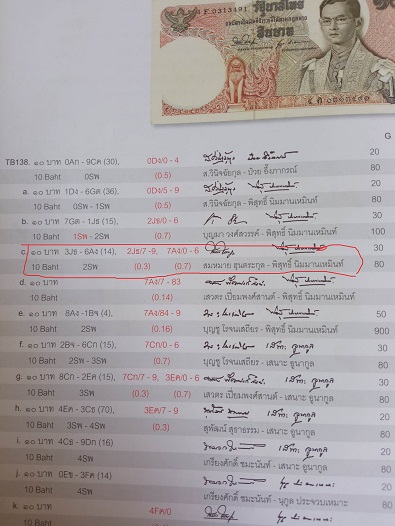 รัฐบาลไทย
สิบบาท
G
TB138. ๑๐ บาท 0Aก - 9Cค (30), 0D๔/0 - 4 20
10 Baht 0SW (0.5) ส.วินิจฉัยกุล - ป๋วย อึ๊งภากรณ์ 80
a. ๑๐ บาท 1D๔ - 6Gต (36), 0D๔/5 - 9 20
10 Baht 0SW - 1SW (0.5) ส.วินิจฉัยกุล - พิสุทธิ์ นิมมานเหมินท์ 80
b. ๑๐ บาท 7Gต - 1Jธ (15), 2Jธ/0 - 6 30
10 Baht 1SW - 2SW (0.7) บุญมา วงศ์สวรรค์ - พิสุทธิ์ นิมมานเหมินท์ 100
c. ๑๐ บาท 3Jธ - 6Aง (14) 2Jธ/7 - 9, 7Aง/0 - 6 30
10 Baht 2SW (0.3) (0.7) สมหมาย ฮุนตระกูล - พิสุทธิ์ นิมมานเหมินท์ 80
d. ๑๐ บาท 7Aง/7 - 83
10 Baht 2SW (0.14) เสวตร เปี่ยมพงศ์สานต์ - พิสุทธิ์ นิมมานเหมินท์
e. ๑๐ บาท 8Aง - 1Bจ (4), 7Aง/84 - 9 50
10 Baht 2SW (0.16) บุญชู โรจนเสถียร - พิสุทธิ์ นิมมานเหมินท์ 900
f. ๑๐ บาท 2Bจ - 6Cก (15), 7Cก/0 - 6 30
10 Baht 2SW - 3SW (0.7) บุญชู โรจนเสถียร - เสนาะ อูนากูล 80
g. ๑๐ บาท 8Cก - 2Eค (15), 7Cก/7 - 9, 3Eค/0 - 6 30
10 Baht 3SW (0.3) (0.7) เสวตร เปี่ยมพงศ์สานต์ - เสนาะ อูนากูล 80
h. ๑๐ บาท 4Eค - 3Cธ (70), 3Eค/7 - 9 20
10 Baht 3SW - 4SW (0.3) สุพัฒน์ สุธาธรรม - เสนาะ อูนากูล 80
i. ๑๐ บาท 4Cธ - 9Dก (16) 20
10 Baht 4SW เกรียงศักดิ์ ชมะนันท์ - เสนาะ อูนากูล 80
j. ๑๐ บาท 0Eธ - 3Fค (14) 20
10 Baht 4SW เกรียงศักดิ์ ชมะนันท์ - นุกูล ประจวบเหมาะ 80
k. ๑๐ บาท 4Fค/0